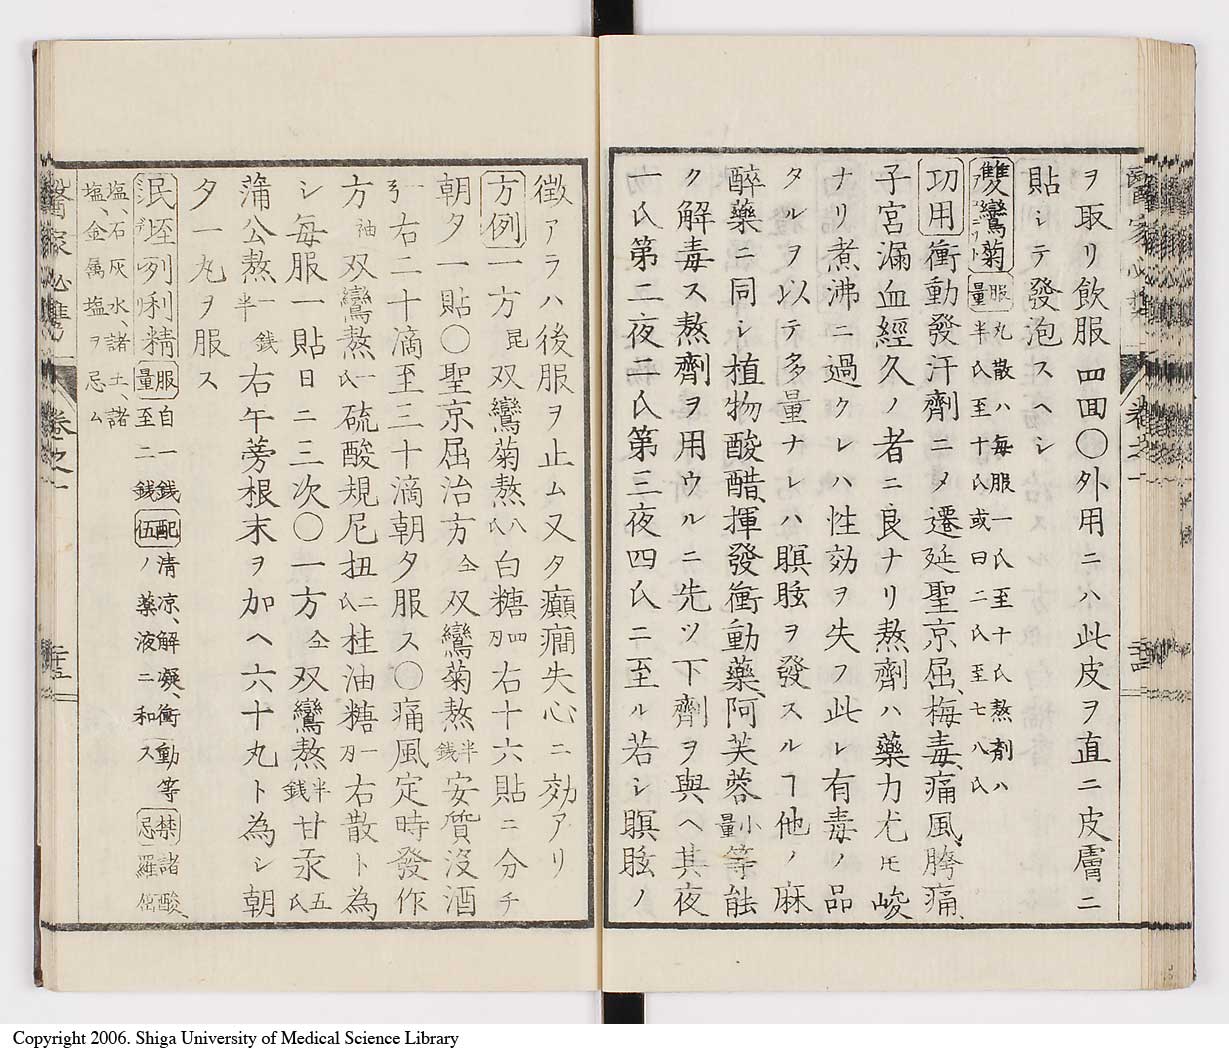 ヲ取リ飲服四回〇外用ニハ此皮ヲ直ニ皮膚ニ
貼シテ發泡スヘシ
雙鸞菊
服量
丸散ハ毎服一氏至十氏熬剤ハ
半氏至十氏或曰二氏至七八氏
功用
衝動發汗劑ニメ遷延聖京屈、梅毒、痛風、胯痛、
子宮漏血經久ノ者ニ良ナリ熬劑ハ藥力尤モ峻
ナリ煮沸ニ過クレハ性効ヲ失フ此レ有毒ノ品
タルヲ以テ多量ナレハ瞑眩ヲ發スルヿ他ノ麻
醉藥ニ同シ植物酸醋、揮發衝動藥、阿芙蓉小量等能
ク解毒ス熬劑ヲ用ウルニ先ツ下劑ヲ與ヘ其夜
一氏第二夜二氏第三夜四氏ニ至ル若シ瞑眩ノ
徴アラハ後服ヲ止ム又タ癲癇失心ニ効アリ
方例
一方昆双鸞菊熬八氏白糖四刃右十六貼ニ分チ
朝夕一貼〇聖京屈治方仝双鸞菊熬半銭安質没酒
一右二十滴至三十滴朝夕服ス〇痛風定時發作
方袖双鸞熬一氏硫酸規尼扭二氏桂油糖一刃右散ト為
シ毎服一貼日ニ三次〇一方仝双鸞熬半銭甘汞五氏
蒲公熬一銭半右午蒡根末ヲ加ヘ六十丸ト為シ朝
夕一丸ヲ服ス
泯垤列利精
服量
自一銭
至二銭
配伍
清凉、解凝、衝動等
ノ藥液ニ和ス
禁忌
諸酸、
羅傕
塩、石灰水、諸土、諸
塩、金属塩ヲ忌ム
醫家必携
卷之一
二十四
二十五
Copyright 2006. Shiga University of Medical Science Library